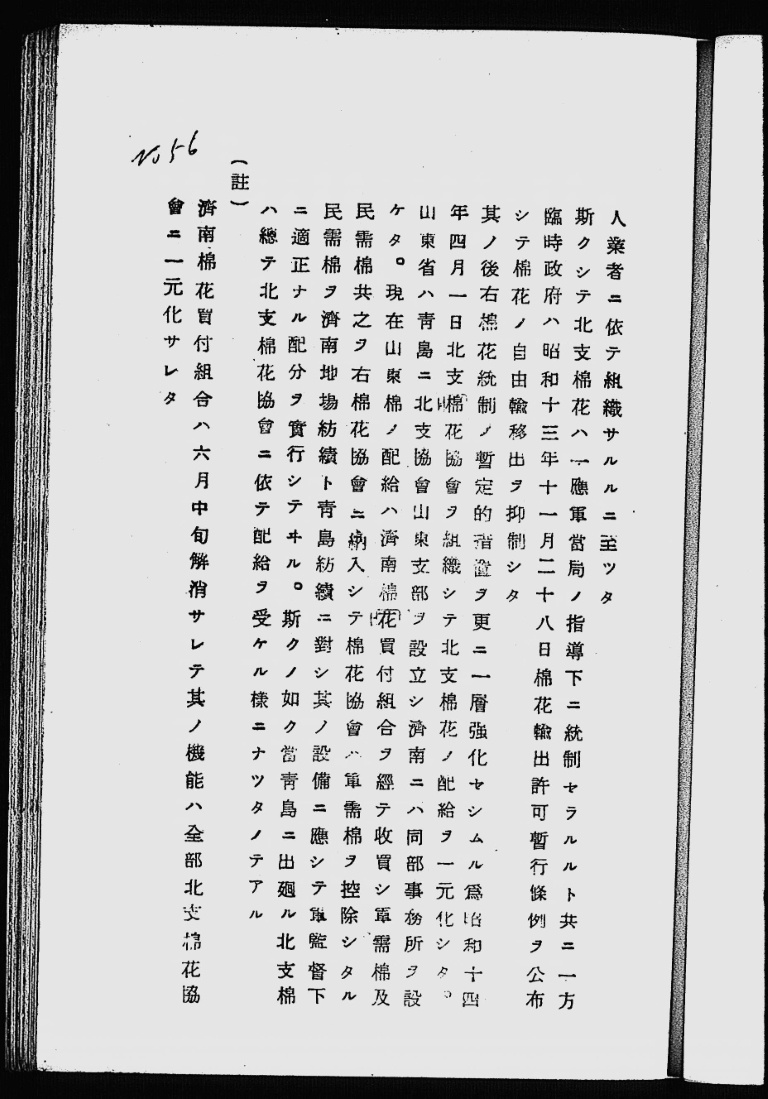 No 56
人業者ニ依テ組織サルルニ至ツタ
斯クシテ北支棉花ハ一應軍當局ノ指導下ニ統制セラルルト共ニ一方
臨時政府ハ昭和十三年十一月二十八日棉花輸出許可暫行條例ヲ公布
シテ棉花ノ自由輸移出ヲ抑制シタ
其ノ後右棉花統制ノ暫定的措置ヲ更ニ一層强化セシムル爲昭和十四
年四月一日北支棉花協會ヲ組織シテ北支棉花ノ配給ヲ一元化シタ。
山東省ハ青島ニ北支協會山東支部ヲ設立シ濟南ニハ同部事務所ヲ設
ケタ。現在山東棉ノ配給ハ濟南棉花買付組合ヲ經テ收買シ軍需棉及
民需棉共之ヲ右棉花協會ニ納入シテ棉花協會ハ軍需棉ヲ控除シタル
民需棉ヲ濟南地場紡績ト青島紡績ニ對シ其ノ設備ニ應シテ軍監督下
ニ適正ナル配分ヲ實行シテヰル。斯クノ如ク當青島ニ出廻ル北支棉
ハ總テ北支棉花協會ニ依テ配給ヲ受ケル樣ニナツタノテアル
(註)
濟南棉花買付組合ハ六月中旬解消サレテ其ノ機能ハ全部北支棉花協
會ニ一元化サレタ